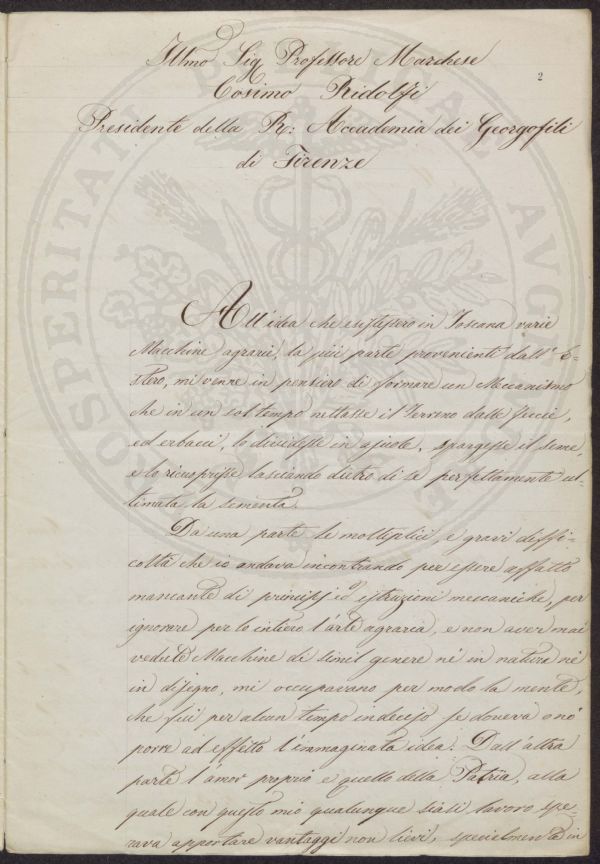 Illmo Sig Professore Marchese
2
Cosimo Ridolfi
Presidente della R: Accademia dei Georgofili
di Firenze
PROSPERITATI PUBLICAE AUGENDAE
All' idea che esistessero in Toscana varie
Macchine agrarie, la più parte provenienti dall' E-
stero, mi venne in pensiero di formare un Meccanismo
che in un sol tempo nettasse il Terreno dalle feccie,
ed erbacci, lo dividesse in ajuole, spargesse il seme,
e lo ricuoprisse lasciando dietro di se perfettamente ul-
timata la sementa.
Da una parte le moltiplici, e gravi diffi-
coltà che io andava incontrando per essere affatto
mancante di principj ed istruzioni meccaniche, per
ignorare per lo intiero l'arte agraria, e non aver mai
vedute Macchine di simil genere nè in natura nè
in disegno, mi occupavano per modo la mente,
che fui per alcun tempo indeciso se doveva o nò
porre ad effetto l'immaginata idea: Dall' altra
parte l'amor proprio e quello della Patria, alla
quale con questo mio qualunque siasi lavoro spe-
rava apportare vantaggi non lievi, specialmente in